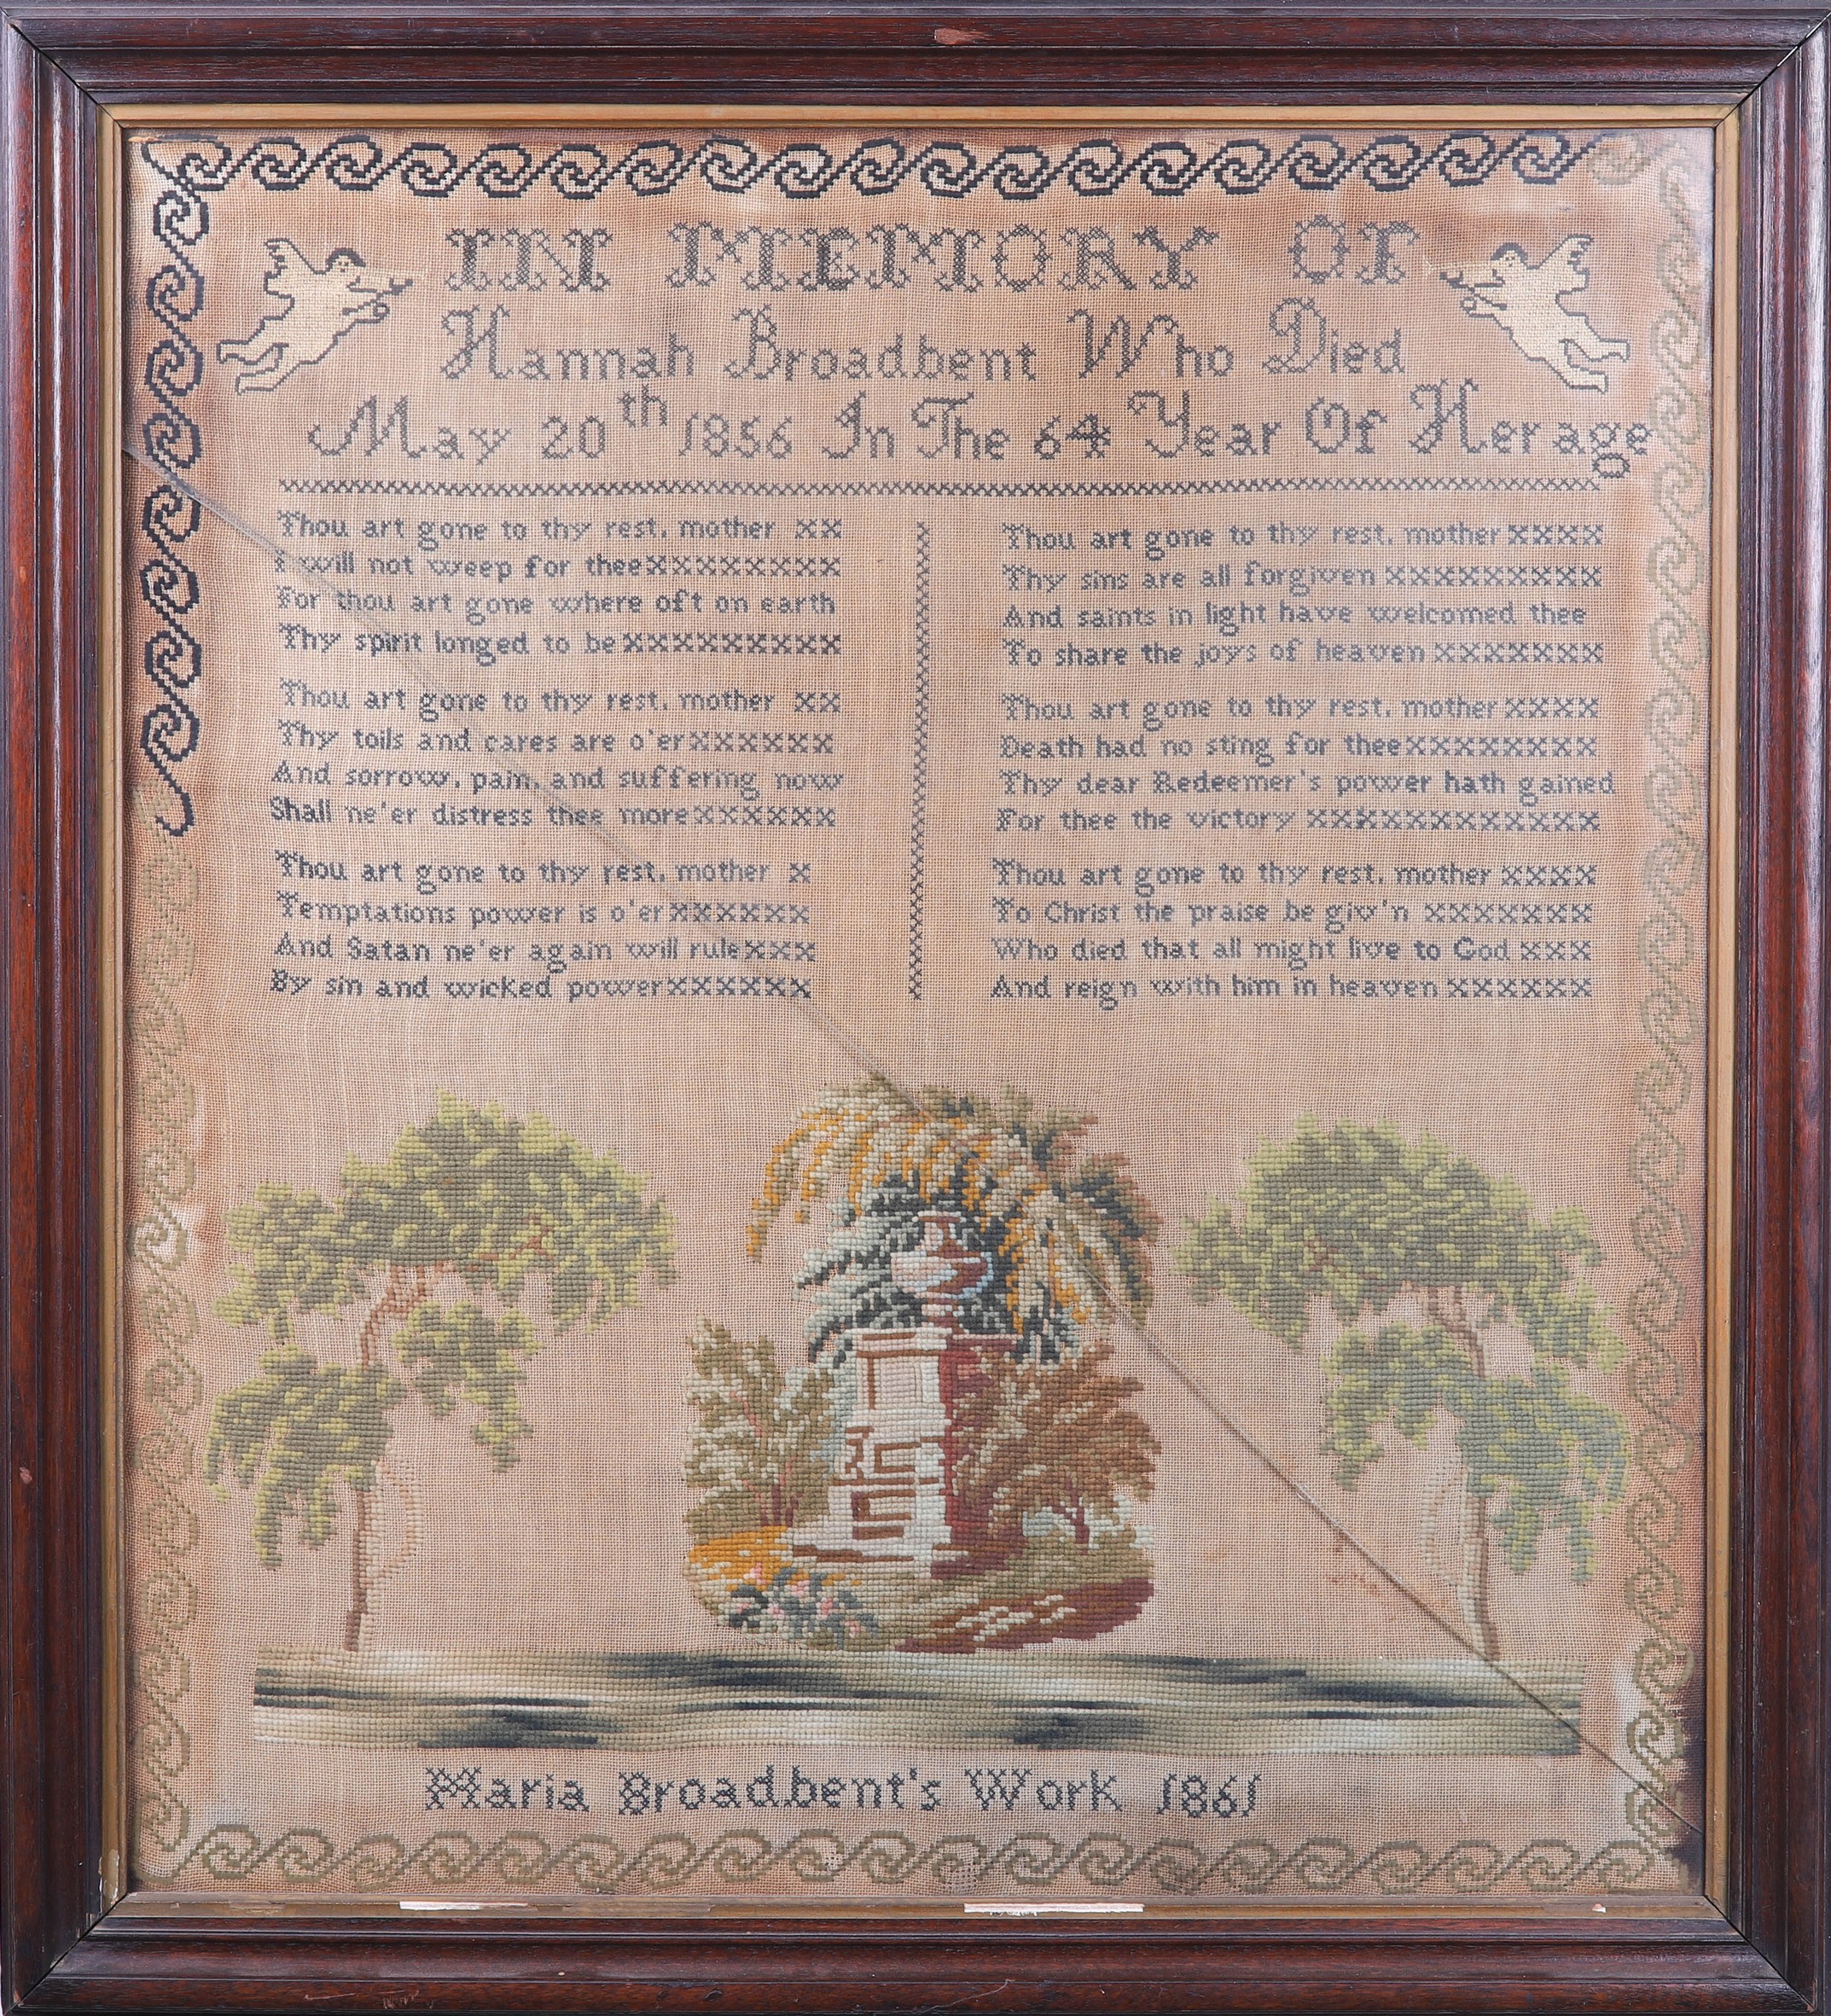 IN MEMORY OF
Hannah Broadbent Who Died
May 20th 1856 In The 64 Year Of Her age
Thou art gone to thy rest, mother XX
I will not weep for theeXXXXXXXX
For thou art gone where oft on earth
Thy spirit longed to beXXXXXXXXX
Thou art gone to thy rest, mother XX
Thy toils and cares are o'erXXXXXX
And sorrow, pain, and suffering now
Shall ne'er distress thee moreXXXXXX
Thou art gone to thy rest, mother X
Temptations power is o'erXXXXXX
And Satan ne'er again will ruleXXX
By sin and wicked powerXXXXXX
Thou art gone to thy rest, motherXXXX
Thy sins are all forgivenXXXXXXXXX
And saints in light have welcomed thee
To share the joys of heavenXXXXXXX
Thou art gone to thy rest, motherXXXX
Death had no sting for theeXXXXXXXX
Thy dear Redeemer's power hath gained
For thee the victory XXXXXXXXXXXX
Thou art gone to thy rest, mother XXXX
To Christ the praise be giv'n XXXXXXX
Who died that all might live to God XXX
And reign with him in heaven XXXXXX
Maria Broadbent's Work 1861